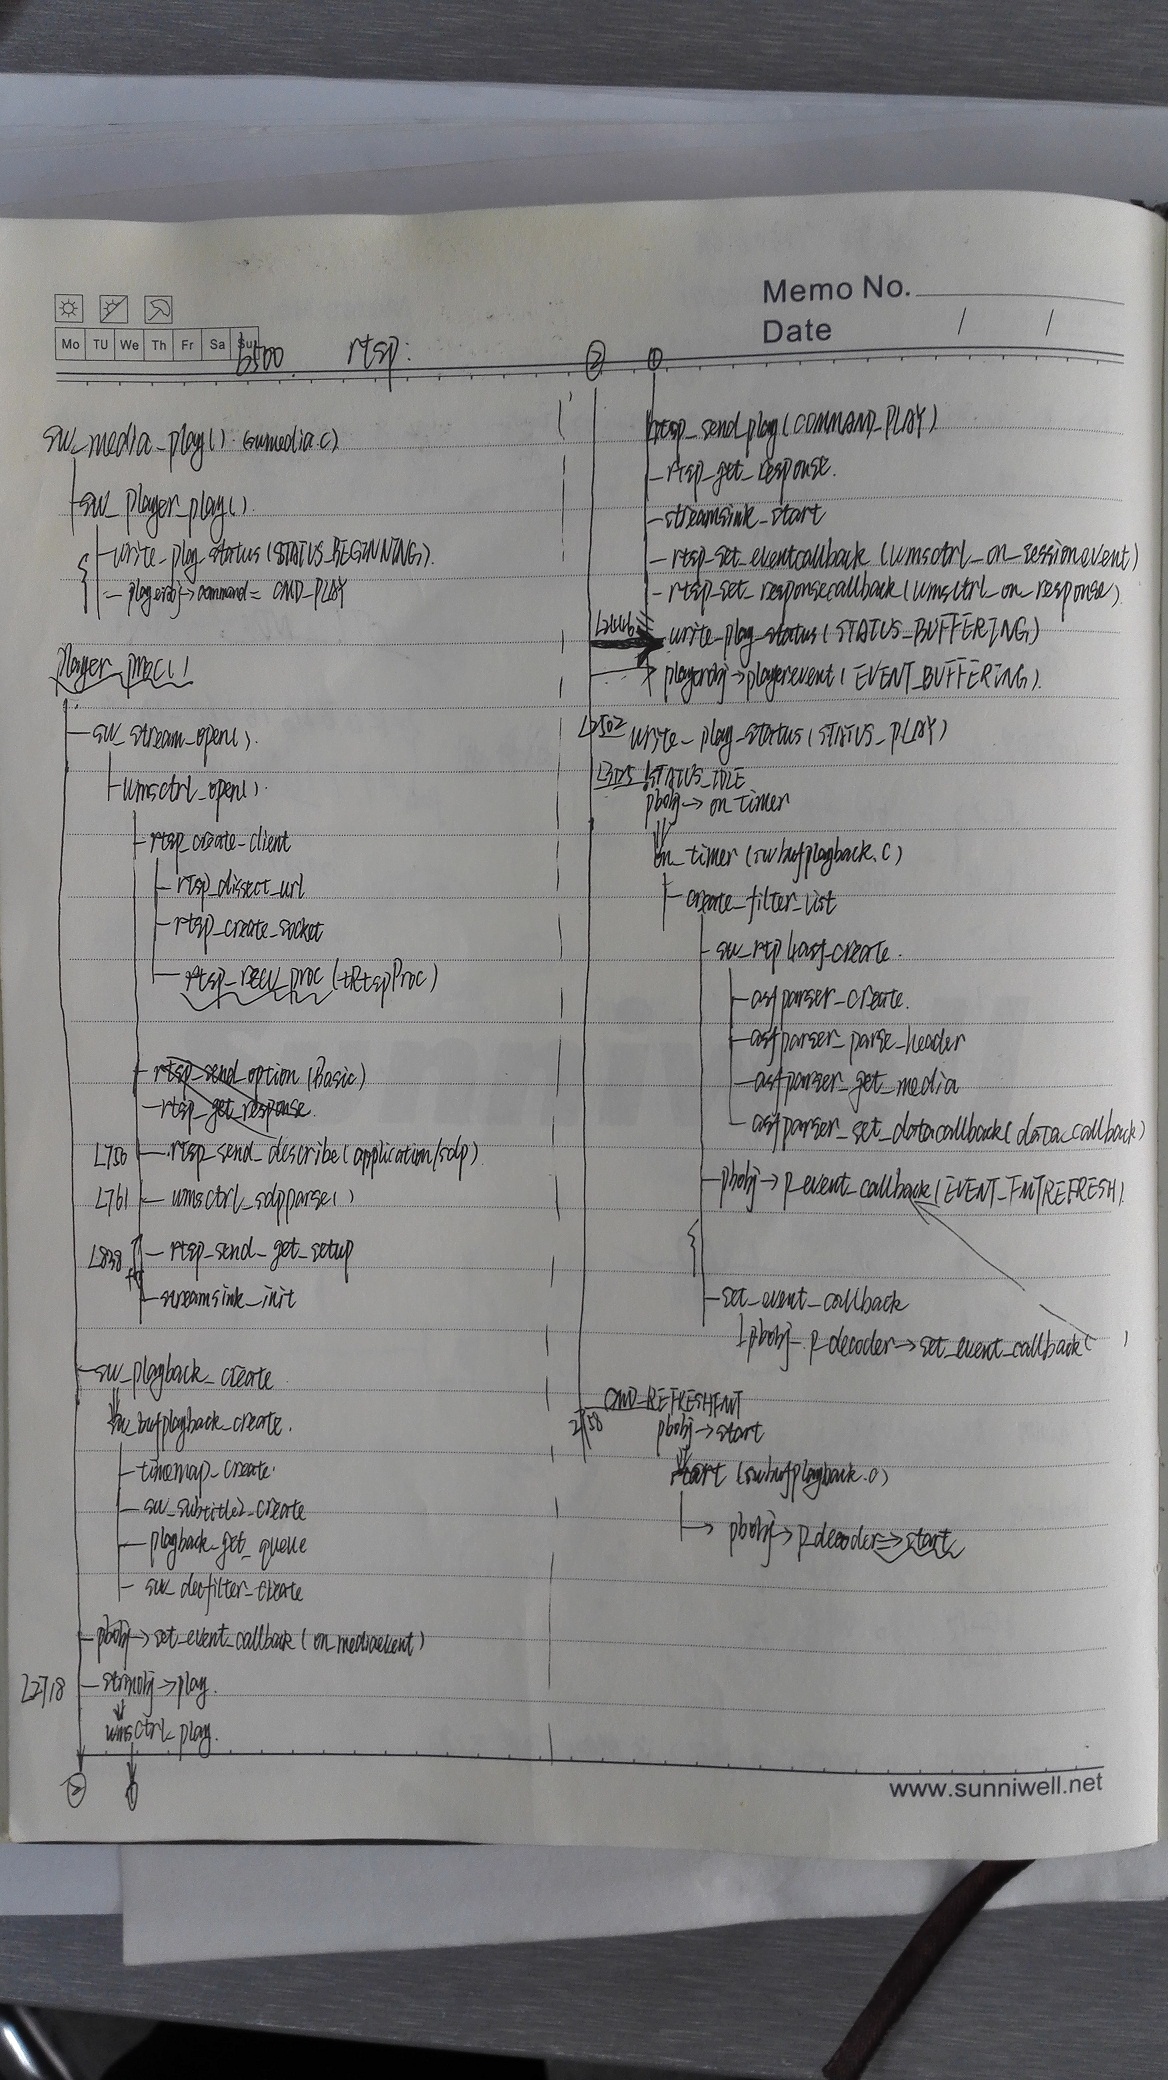 Memo No.
Date / /
Mo TU We Th Fr Sa Su
6500 rtsp:
sw_media_play() (swmedia.c)
sw_player_play()
write_play_status(STATUS_BEGINNING)
playerobj->command = CMD_PLAY
player_proc()
sw_stream_open()
wmsctrl_open()
rtsp_create_client
rtsp_dissect_url
rtsp_create_socket
rtsp_recv_proc (tRtspProc)
rtsp_send_option (Basic)
rtsp_get_response
L750 rtsp_send_describe(application/sdp)
L761 wmsctrl_sdpparse()
L838 rtsp_send_get_setup
streamsink_init
sw_playback_create
sw_bufplayback_create
timemap_create
sw_subtitle2_create
playback_get_queue
sw_decfilter_create
pbobj->set_event_callback (on_mediaevent)
L2718 strmobj->play
wmsctrl_play
② ①
② ①
rtsp_send_play(COMMAND_PLAY)
rtsp_get_response
streamsink_start
rtsp_set_eventcallback (wmsctrl_on_sessionevent)
rtsp_set_responsecallback (wmsctrl_on_response)
write_play_status(STATUS_BUFFERING)
playerobj->playerevent(EVENT_BUFFERING)
L2502 write_play_status(STATUS_PLAY)
STATUS_IDLE
pbobj->on timer
on_timer (swbufplayback.c)
create_filter_list
sw_rtp4asf_create
asfparser_create
asfparser_parse_header
asfparser_get_media
asfparser_set_datacallback(data_callback)
pbobj->p_event_callback(EVENT_FMTREFRESH)
set_event_callback
pbobj_p_decoder->set_event_callback( )
CMD_REFRESHFMT
pbobj->start
start (swbufplayback.c)
pbobj->p_decoder=>start
www.sunniwell.net